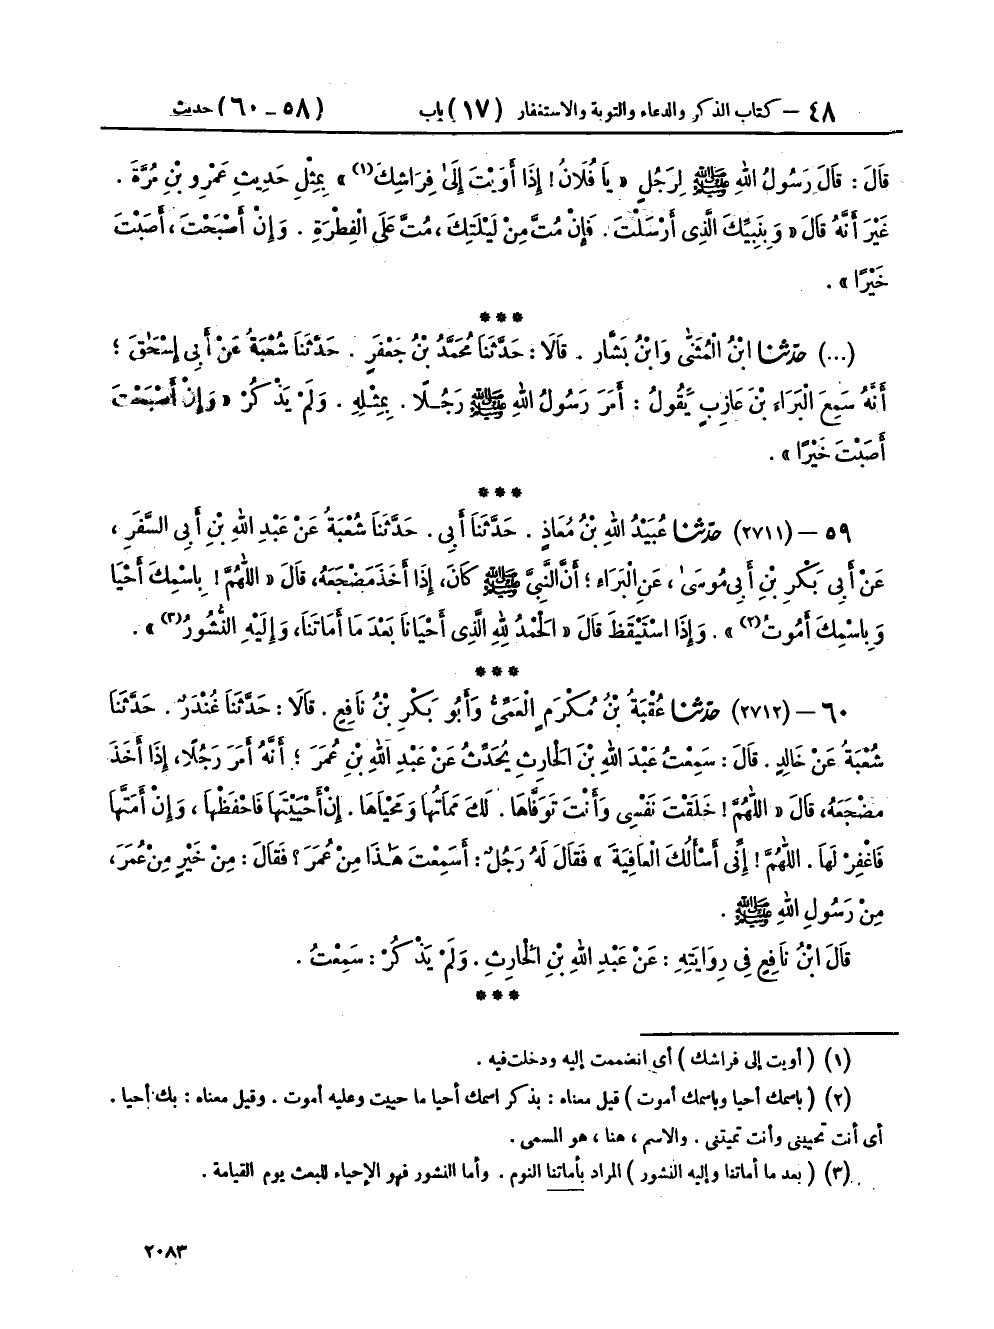 ٤٨ – كتاب الذكر والدعاء والتوبة والاستغفار (١٧) باب (٥٨ – ٦٠) حديث
قَالَ : قَالَ رَسُولُ اللهِ ﷺ لِرَجُلٍ « يَا فُلَانُ ! إِذَا أَوَيْتَ إِلَىٰ فِرَاشِكَ(١) » بِمِثْلِ حَدِيثِ عَمْرِو بْنِ مُرَّةَ .
غَيْرَ أَنَّهُ قَالَ « وَبِنَبِيِّكَ الَّذِى أَرْسَلْتَ . فَإِنْ مُتَّ مِنْ لَيْلَتِكَ ، مُتَّ عَلَى الْفِطْرَةِ . وَإِنْ أَصْبَحْتَ ، أَصَبْتَ
خَيْرًا » .
***
(...) حَدَّثَنَا ابْنُ الْمُثَنَّىٰ وَابْنُ بَشَّارٍ . قَالَا : حَدَّثَنَا مُحَمَّدُ بْنُ جَعْفَرٍ . حَدَّثَنَا شُعْبَةُ عَنْ أَبِى إِسْحَٰقَ ؛
أَنَّهُ سَمِعَ الْبَرَاءَ بْنَ عَازِبٍ يَقُولُ : أَمَرَ رَسُولُ اللهِ ﷺ رَجُلًا . بِمِثْلِهِ . وَلَمْ يَذْكُرْ « وَإِنْ أَصْبَحْتَ
أَصَبْتَ خَيْرًا » .
***
٥٩ – (٢٧١١) حَدَّثَنَا عُبَيْدُ اللهِ بْنُ مُعَاذٍ . حَدَّثَنَا أَبِى . حَدَّثَنَا شُعْبَةُ عَنْ عَبْدِ اللهِ بْنِ أَبِى السَّفَرِ ،
عَنْ أَبِى بَكْرِ بْنِ أَبِى مُوسَىٰ ، عَنِ الْبَرَاءِ ؛ أَنَّ النَّبِىَّ ﷺ كَانَ، إِذَا أَخَذَ مَضْجَعَهُ، قَالَ « اللَّهُمَّ ! بِاسْمِكَ أَحْيَا
وَبِاسْمِكَ أَمُوتُ(٢) » . وَإِذَا اسْتَيْقَظَ قَالَ « الْحَمْدُ لِلهِ الَّذِى أَحْيَانَا بَعْدَ مَا أَمَاتَنَا، وَإِلَيْهِ النُّشُورُ(٣) » .
***
٦٠ – (٢٧١٢) حَدَّثَنَا عُقْبَةُ بْنُ مُكْرَمٍ الْعَمِّىُّ وَأَبُو بَكْرِ بْنُ نَافِعٍ . قَالَا : حَدَّثَنَا غُنْدَرٌ . حَدَّثَنَا
شُعْبَةُ عَنْ خَالِدٍ . قَالَ : سَمِعْتُ عَبْدَ اللهِ بْنَ الْحَارِثِ يُحَدِّثُ عَنْ عَبْدِ اللهِ بْنِ عُمَرَ ؛ أَنَّهُ أَمَرَ رَجُلًا، إِذَا أَخَذَ
مَضْجَعَهُ، قَالَ « اللَّهُمَّ ! خَلَقْتَ نَفْسِى وَأَنْتَ تَوَفَّاهَا . لَكَ مَمَاتُهَا وَمَحْيَاهَا . إِنْ أَحْيَيْتَهَا فَاحْفَظْهَا ، وَإِنْ أَمَتَّهَا
فَاغْفِرْ لَهَا . اللَّهُمَّ ! إِنِّى أَسْأَلُكَ الْعَافِيَةَ » فَقَالَ لَهُ رَجُلٌ : أَسَمِعْتَ هَٰذَا مِنْ عُمَرَ ؟ فَقَالَ : مِنْ خَيْرٍ مِنْ عُمَرَ،
مِنْ رَسُولِ اللهِ ﷺ .
قَالَ ابْنُ نَافِعٍ فِى رِوَايَتِهِ : عَنْ عَبْدِ اللهِ بْنِ الْحَارِثِ . وَلَمْ يَذْكُرْ : سَمِعْتُ .
***
(١) ( أويت إلى فراشك ) أى انضممت إليه ودخلت فيه .
(٢) ( باسمك أحيا وباسمك أموت ) قيل معناه : بذكر اسمك أحيا ما حييت وعليه أموت . وقيل معناه : بك أحيا .
أى أنت تحيينى وأنت تميتنى . والاسم ، هنا ، هو المسمى .
(٣) ( بعد ما أماتنا وإليه النشور ) المراد بأماتنا النوم . وأما النشور فهو الإحياء للبعث يوم القيامة .
٢٠٨٣